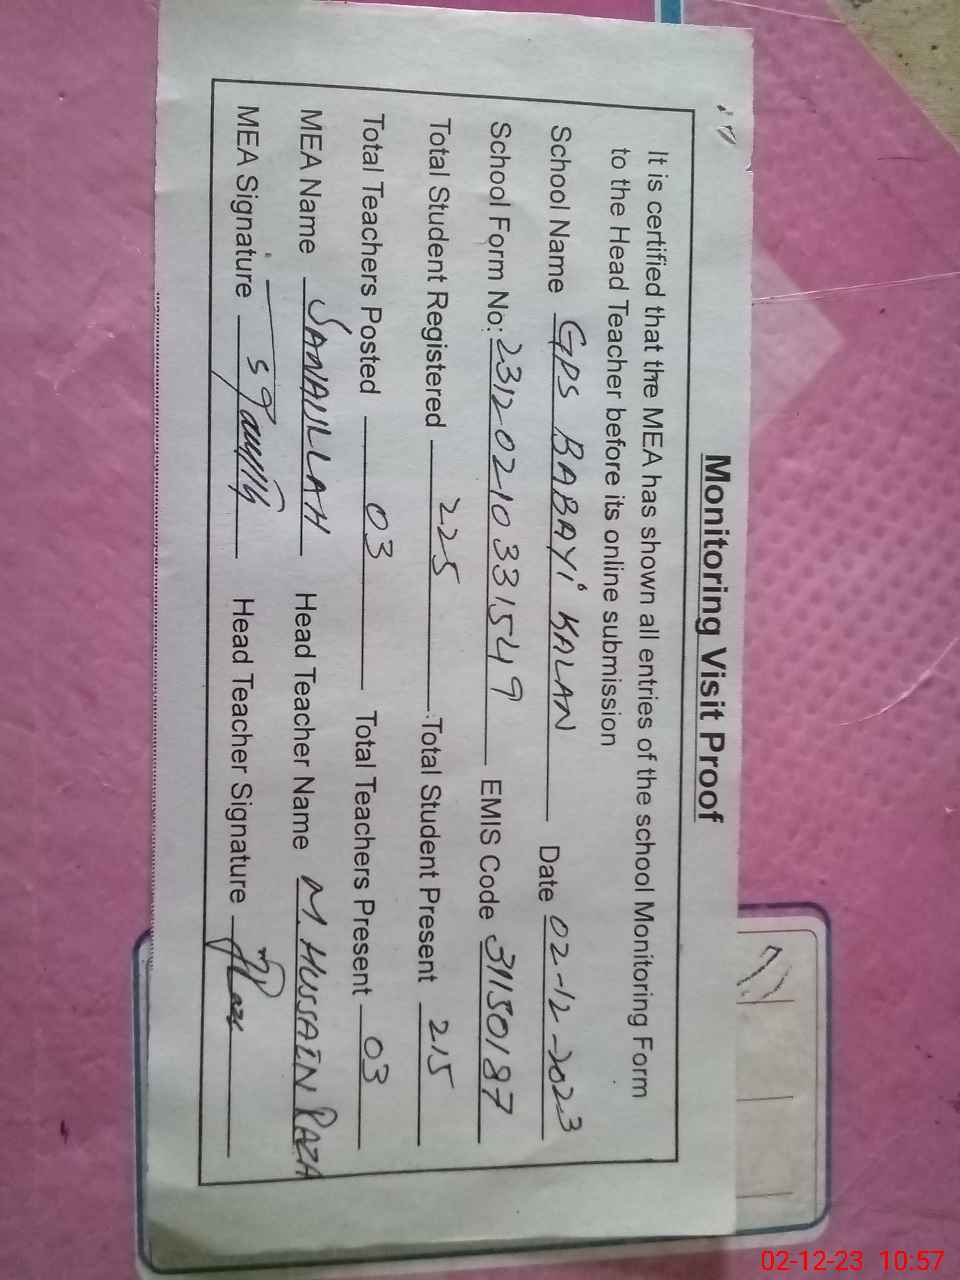 Monitoring Visit Proof
It is certified that the MEA has shown all entries of the school Monitoring Form
to the Head Teacher before its online submission
School Name GPS BABAYi KALAN Date 02-12-2023
School Form No: 23120210331549 EMIS Code 31150187
Total Student Registered 225 Total Student Present 215
Total Teachers Posted 03 Total Teachers Present 03
MEA Name SANAULLAH Head Teacher Name M HUSSAIN RAZA
MEA Signature Head Teacher Signature
02-12-23 10:57